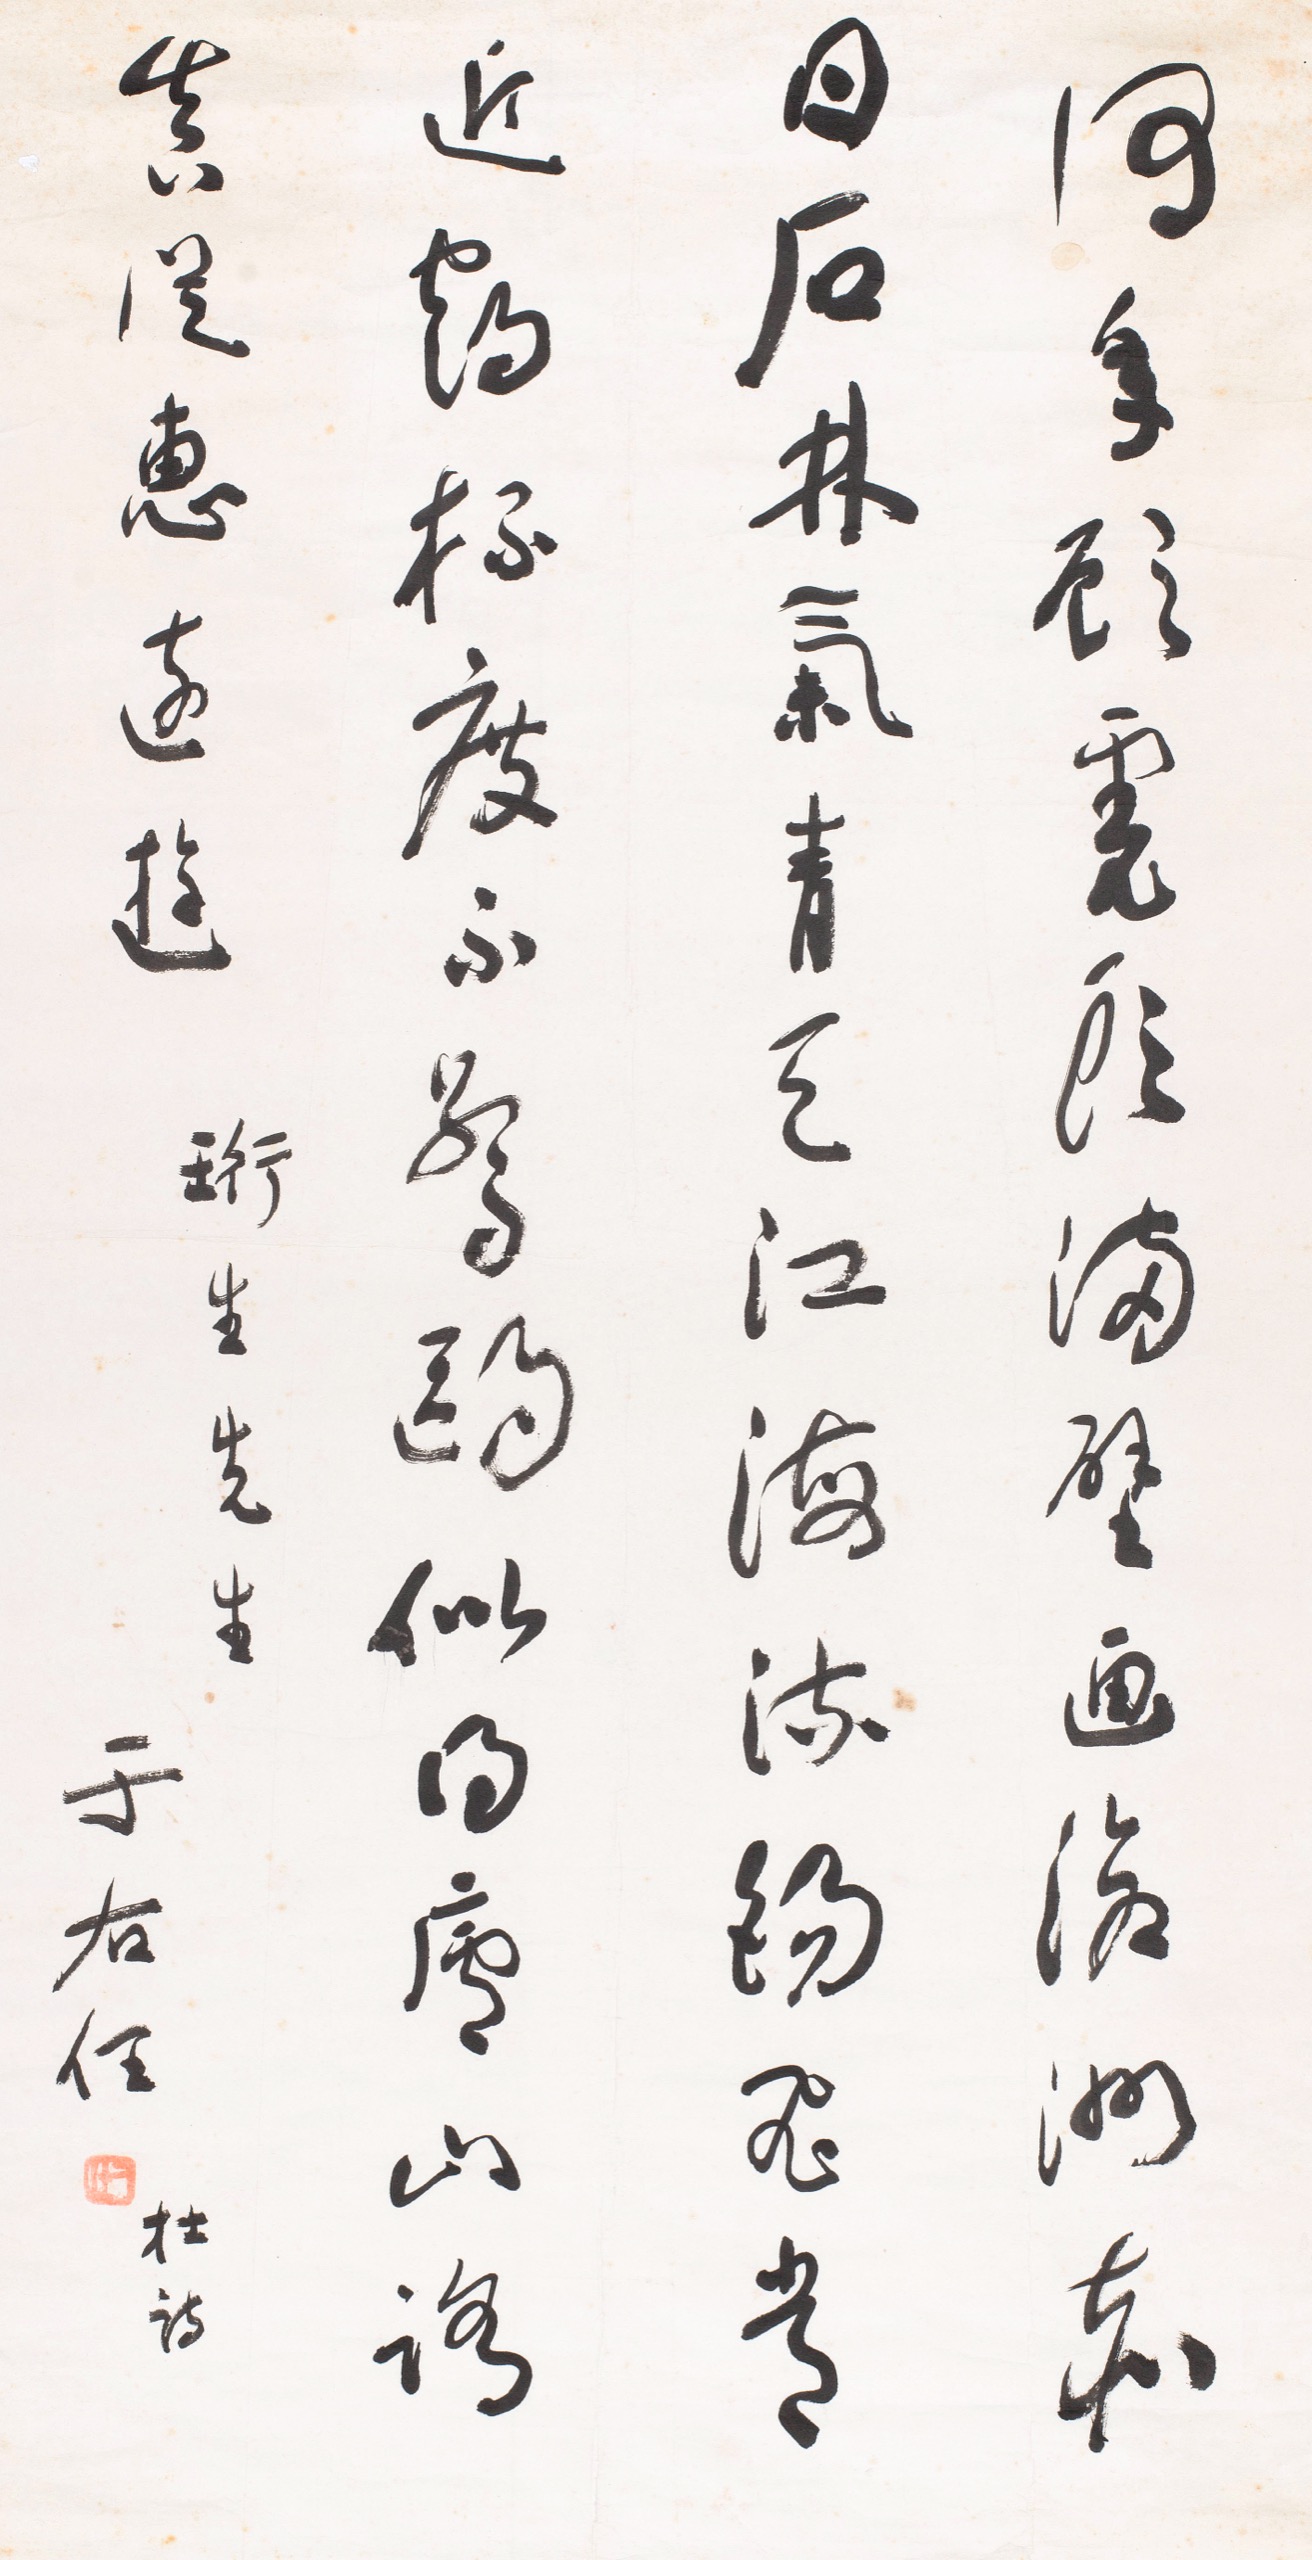 何年顧虎頭滿壁畫滄洲赤
日石林氣青天江海流錫飛常
近鶴杯度不驚鷗似得廬山路
真從惠遠遊
珩生先生
于右任
杜詩